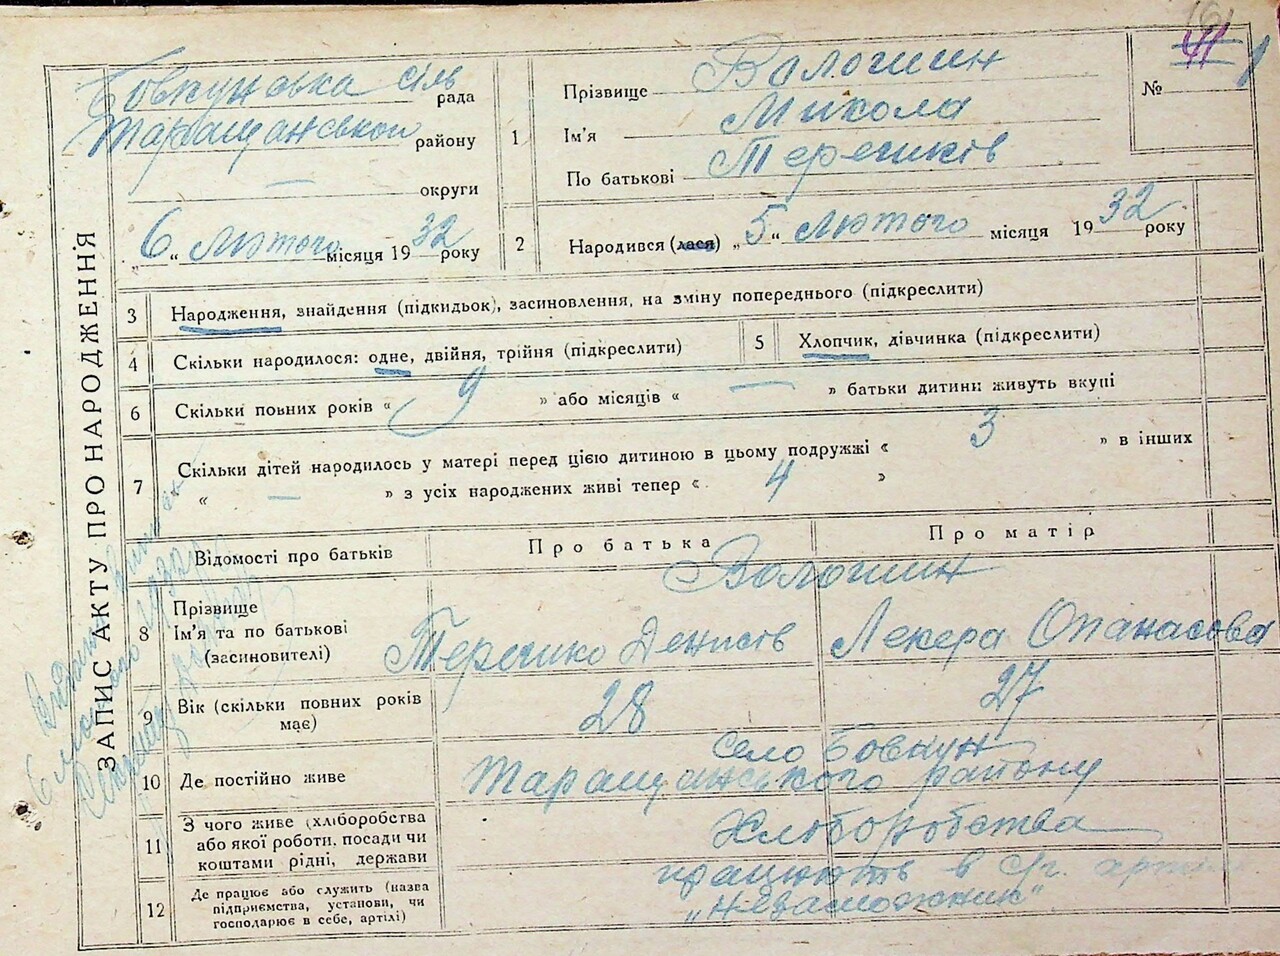 ЗАПИС АКТУ ПРО НАРОДЖЕННЯ
Бовкунська сіль рада
Таращанської району
— округи
„6“ лютого місяця 1932 року
1
Прізвище Волошин
Ім'я Микола
По батькові Терешків
№ 1
2
Народився (лася) „5“ лютого місяця 1932 року
3 Народження, знайдення (підкидьок), засиновлення, на зміну попереднього (підкреслити)
4 Скільки народилося: одне, двійня, трійня (підкреслити)
5 Хлопчик, дівчинка (підкреслити)
6 Скільки повних років « 9 » або місяців « — » батьки дитини живуть вкупі
7 Скільки дітей народилось у матері перед цією дитиною в цьому подружжі « 3 » в інших
« — » з усіх народжених живі тепер « 4 »
Відомості про батьків Про батька Про матір
Волошин
8 Прізвище
Ім'я та по батькові
(засиновителі)
Терешко Денисів Лекера Опанасова
9 Вік (скільки повних років
має)
28 27
10 Де постійно живе
село Бовкун
Таращанського району
11 З чого живе (хліборобства
або якої роботи, посади чи
коштами рідні, держави
Хлоборобства
12 Де працює або служить (назва
підприємства, установи, чи
господарює в себе, артілі)
працюють в с/г. артілі
„Незаможник“